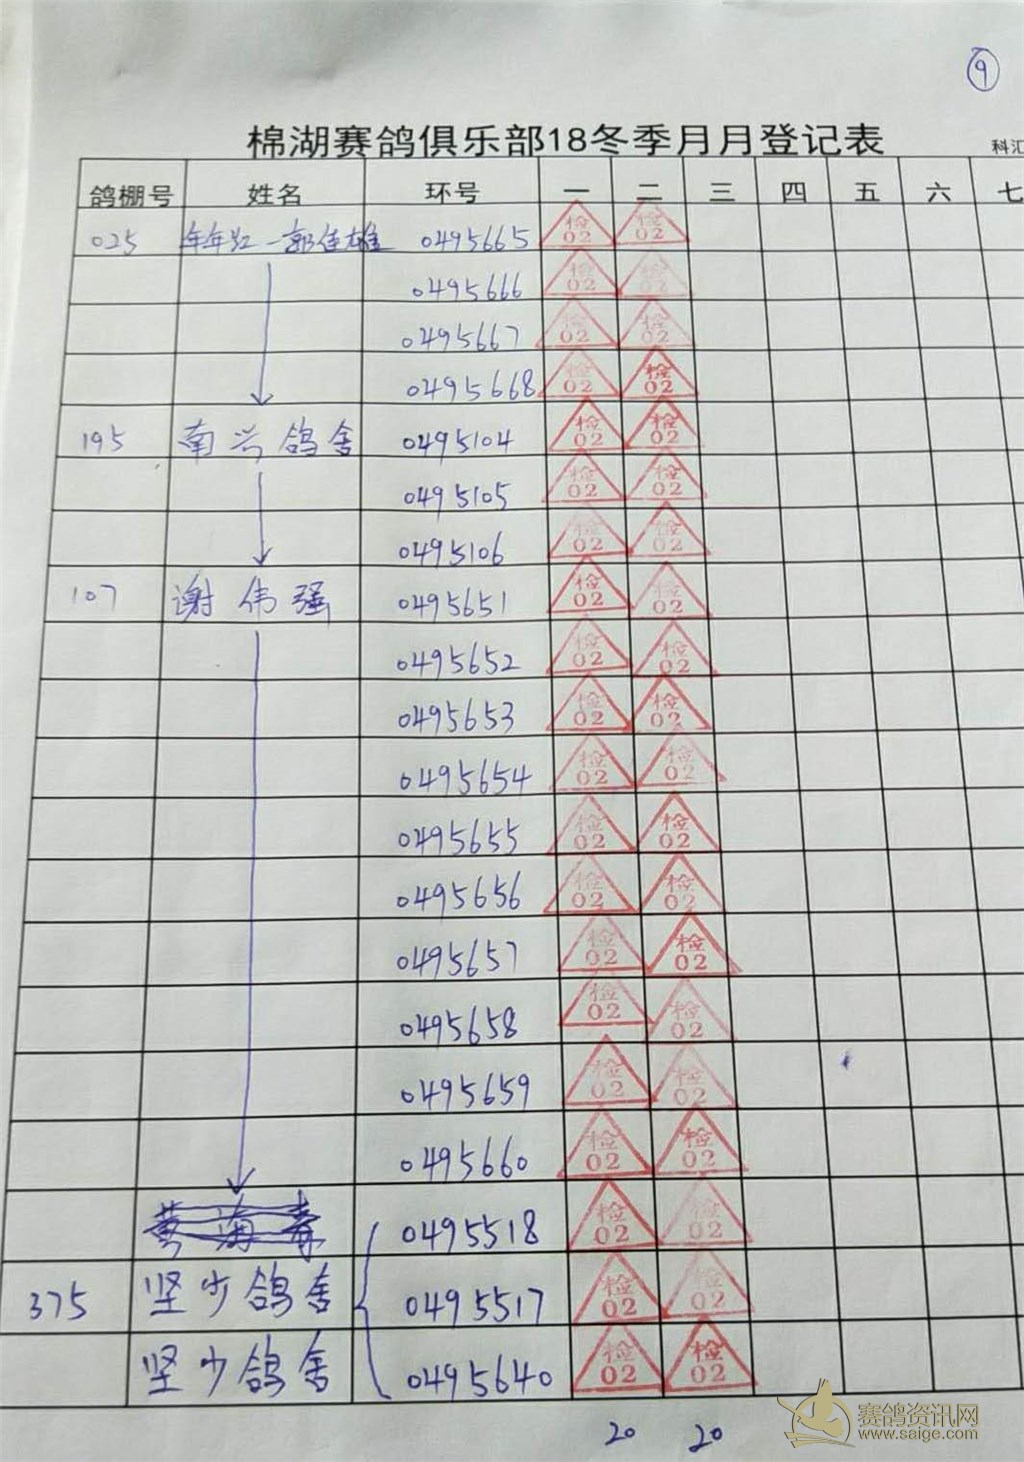 9
棉湖赛鸽俱乐部18冬季月月登记表
科汇
鸽棚号 姓名 环号 一 二 三 四 五 六 七
025 年年红—郭佳雄 0495665 检02 检02
0495666 检02 检02
0495667 检02 检02
0495668 检02 检02
195 南兴鸽舍 0495104 检02 检02
0495105 检02 检02
0495106 检02 检02
107 谢伟强 0495651 检02 检02
0495652 检02 检02
0495653 检02 检02
0495654 检02 检02
0495655 检02 检02
0495656 检02 检02
0495657 检02 检02
0495658 检02 检02
0495659 检02 检02
0495660 检02 检02
0495518 检02 检02
375 坚少鸽舍 0495517 检02 检02
坚少鸽舍 0495640 检02 检02
20 20
赛鸽资讯网
www.saige.com